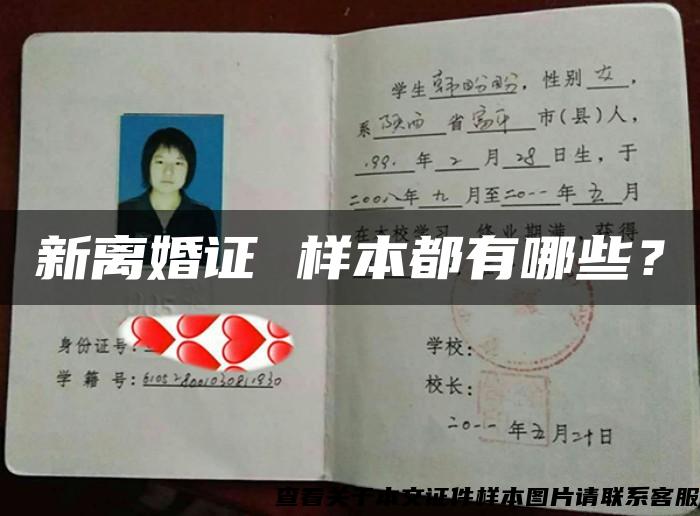 学生韩盼盼，性别女，
系陕西省富平市(县)人，
199 年2月28日生，于
二00八年九月至二0一一年五月
在本校学习
新离婚证 样本都有哪些？
身份证号：
学籍号：
学校：
校长：
二0一一年五月二十日
查看关于本文证件样本图片请联系客服